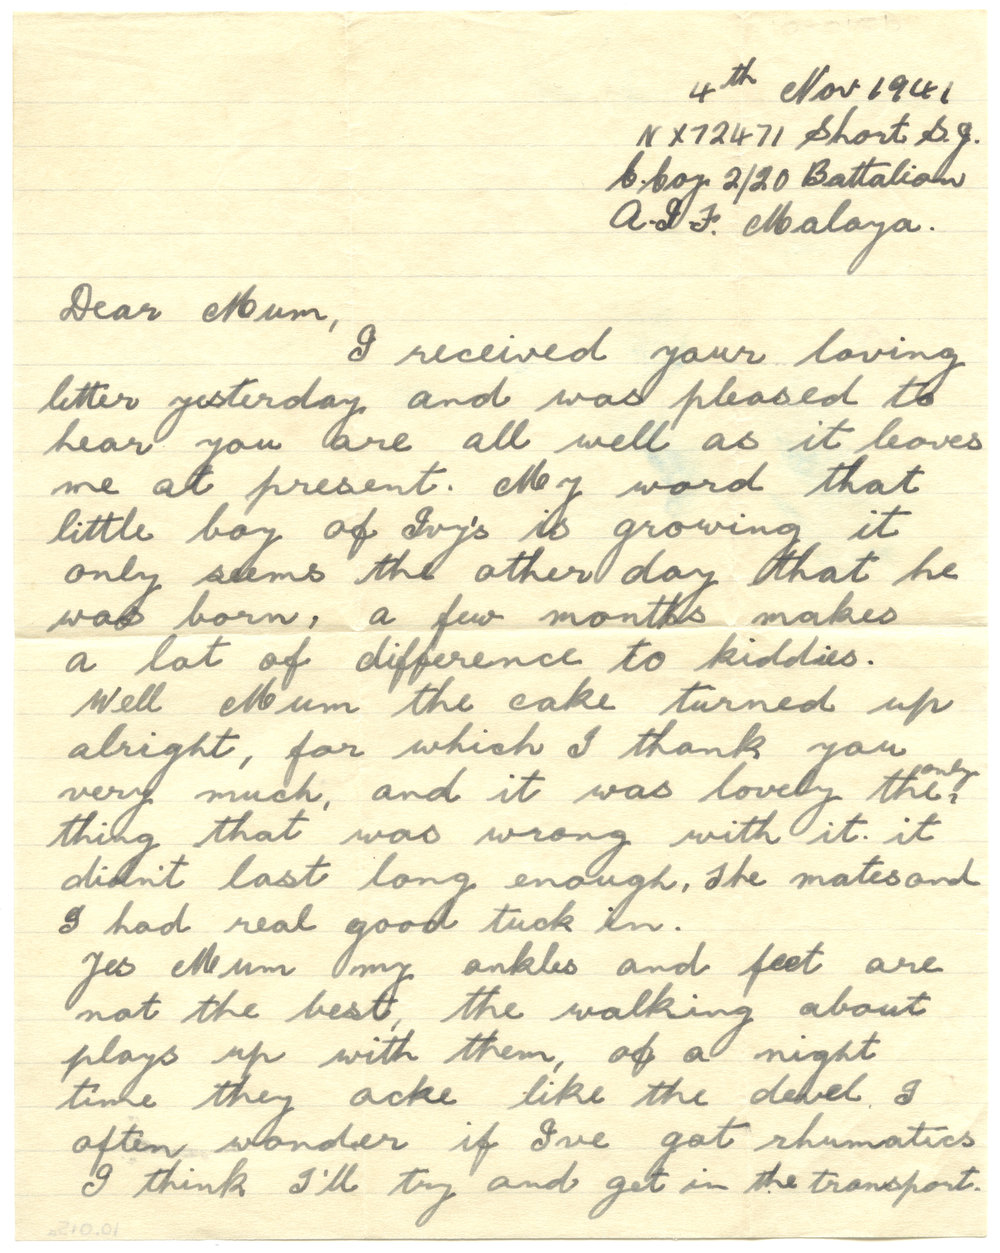 4th Nov 1941
NX72471 Short S.J.
C.Coy 2/20 Battalion
A.I.F. Malaya.
Dear Mum,
I received your loving
letter yesterday and was pleased to
hear you are all well as it leaves
me at present. My word that
little boy of Ivy's is growing it
only seems the other day that he
was born, a few months makes
a lot of difference to kiddies.
Well Mum the cake turned up
alright, for which I thank you
very much, and it was lovely the only
thing that was wrong with it. it
didn't last long enough, the mates and
I had real good tuck in.
Yes Mum my ankles and feet are
not the best, the walking about
plays up with them, of a night
time they acke like the devel I
often wonder if I've got rhumatics
I think I'll try and get in the transport.